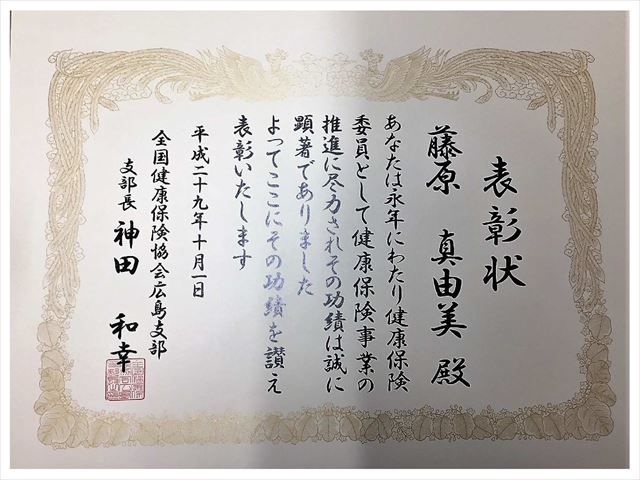 表彰状
藤原 真由美 殿
あなたは永年にわたり健康保険
委員として健康保険事業の
推進に尽力されその功績は誠に
顕著でありました
よってここにその功績を讃え
表彰いたします
平成二十九年十月一日
全国健康保険協会広島支部
支部長 神田 和幸